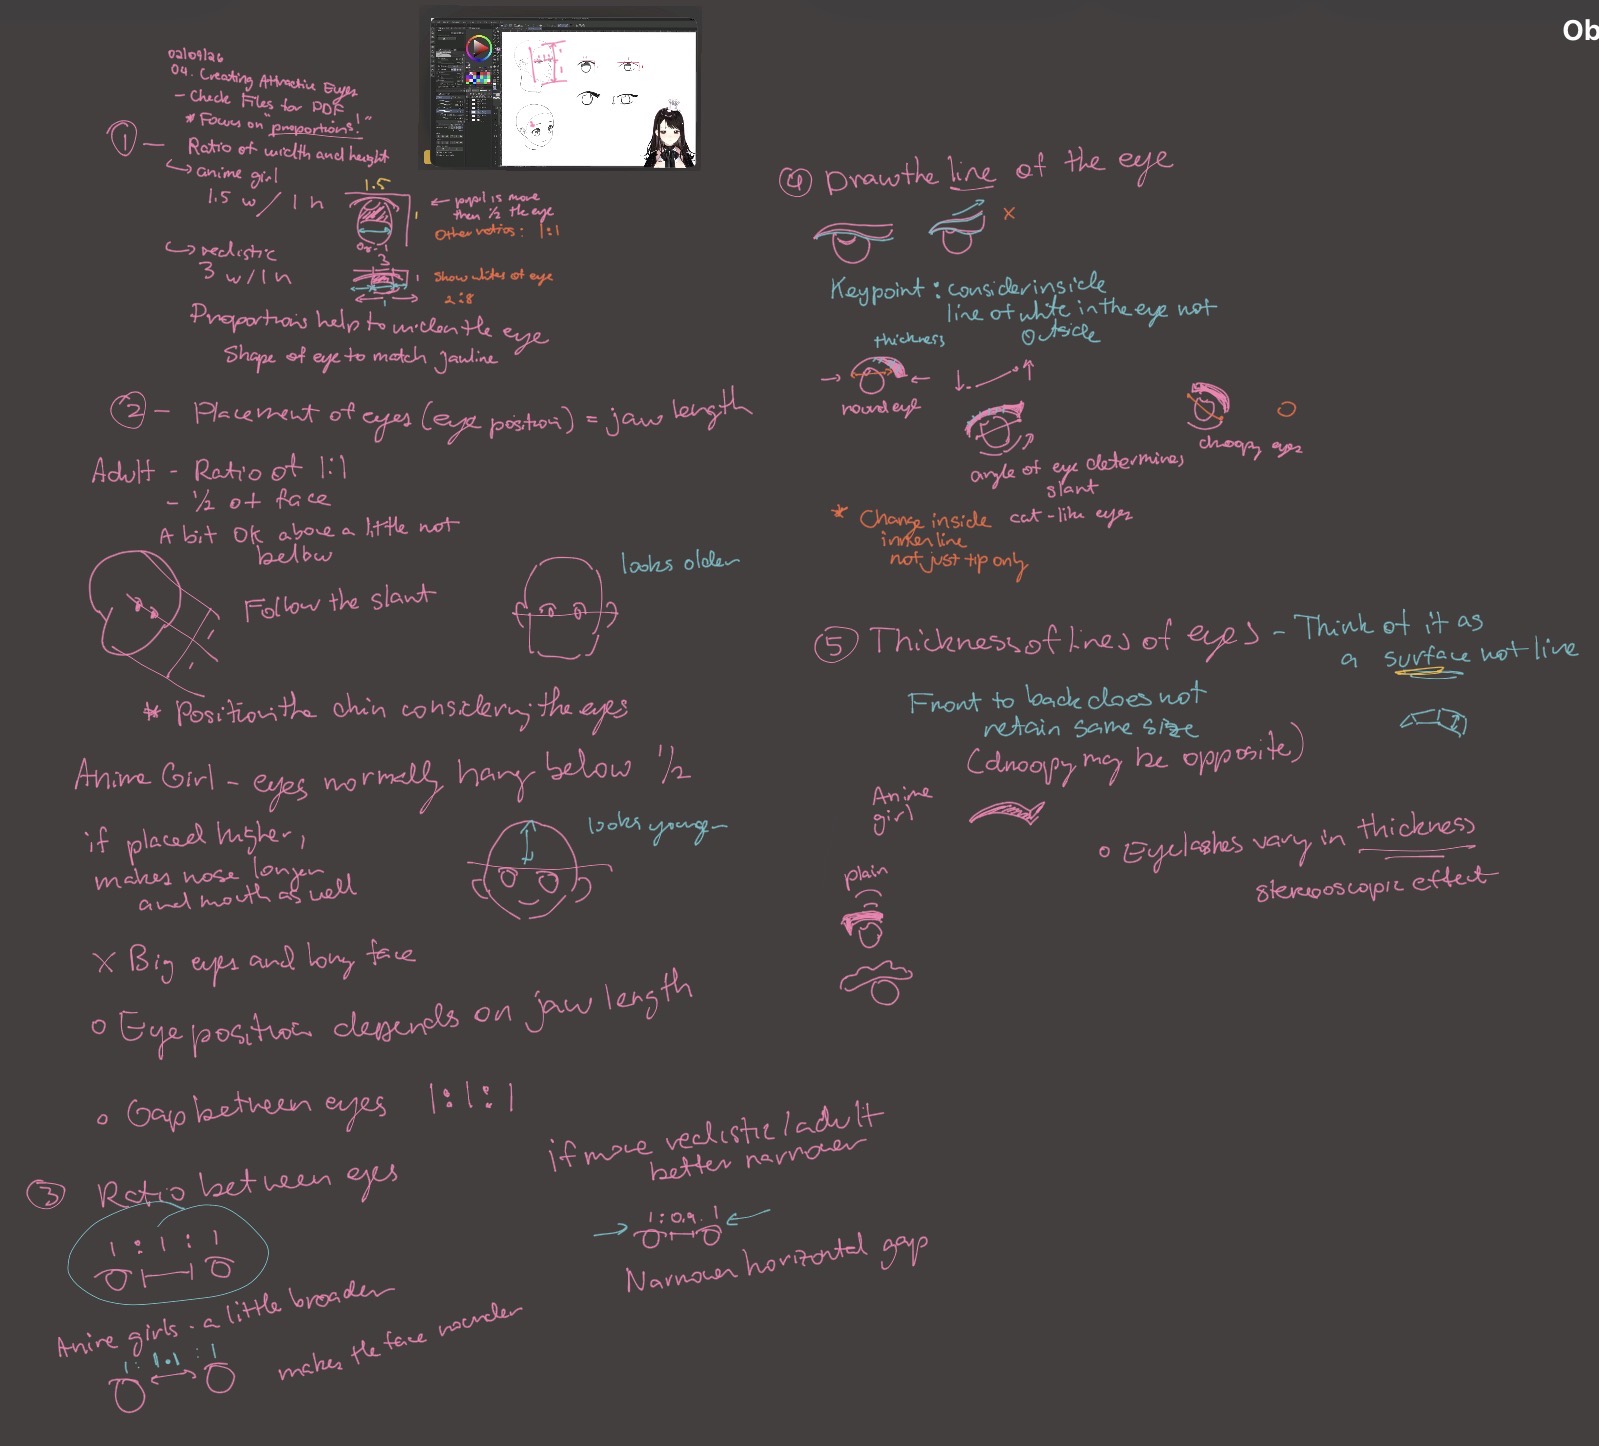 Ob
02/09/26
04. Creating Attractive Eyes
- Check Files for PDF
* Focus on "proportions!"
① - Ratio of width and height
↳ anime girl
1.5 w / 1 h
1.5
1
← pupil is more
then 1/2 the eye
Other ratios: 1:1
↳ realistic
3 w / 1 h
3
1
1
Show whites of eye
2:8
Proportions help to widen the eye
Shape of eye to match jawline
② - Placement of eyes (eye position) = jaw length
Adult - Ratio of 1:1
- 1/2 of face
A bit OK above a little not
below
Follow the slant
looks older
* Position the chin considering the eyes
Anime Girl - eyes normally hang below 1/2
if placed higher,
makes nose longer
and mouth as well
looks younger
X Big eyes and long face
o Eye position depends on jaw length
o Gap between eyes 1:1:1
③ Ratio between eyes
1 : 1 : 1
Anime girls - a little broader
1 : 1.1 : 1
makes the face rounder
if more realistic / adult
better narrower
1 : 0.9 . 1
Narrower horizontal gap
④ Draw the line of the eye
x
Keypoint : consider inside
line of white in the eye not
outside
thickness
round eye
angle of eye determines
slant
cat-like eyes
droopy eyes
* Change inside
inner line
not just tip only
⑤ Thickness of lines of eyes - Think of it as
a surface not line
Front to back does not
retain same size
(droopy may be opposite)
Anime
girl
plain
o Eyelashes vary in thickness
stereoscopic effect